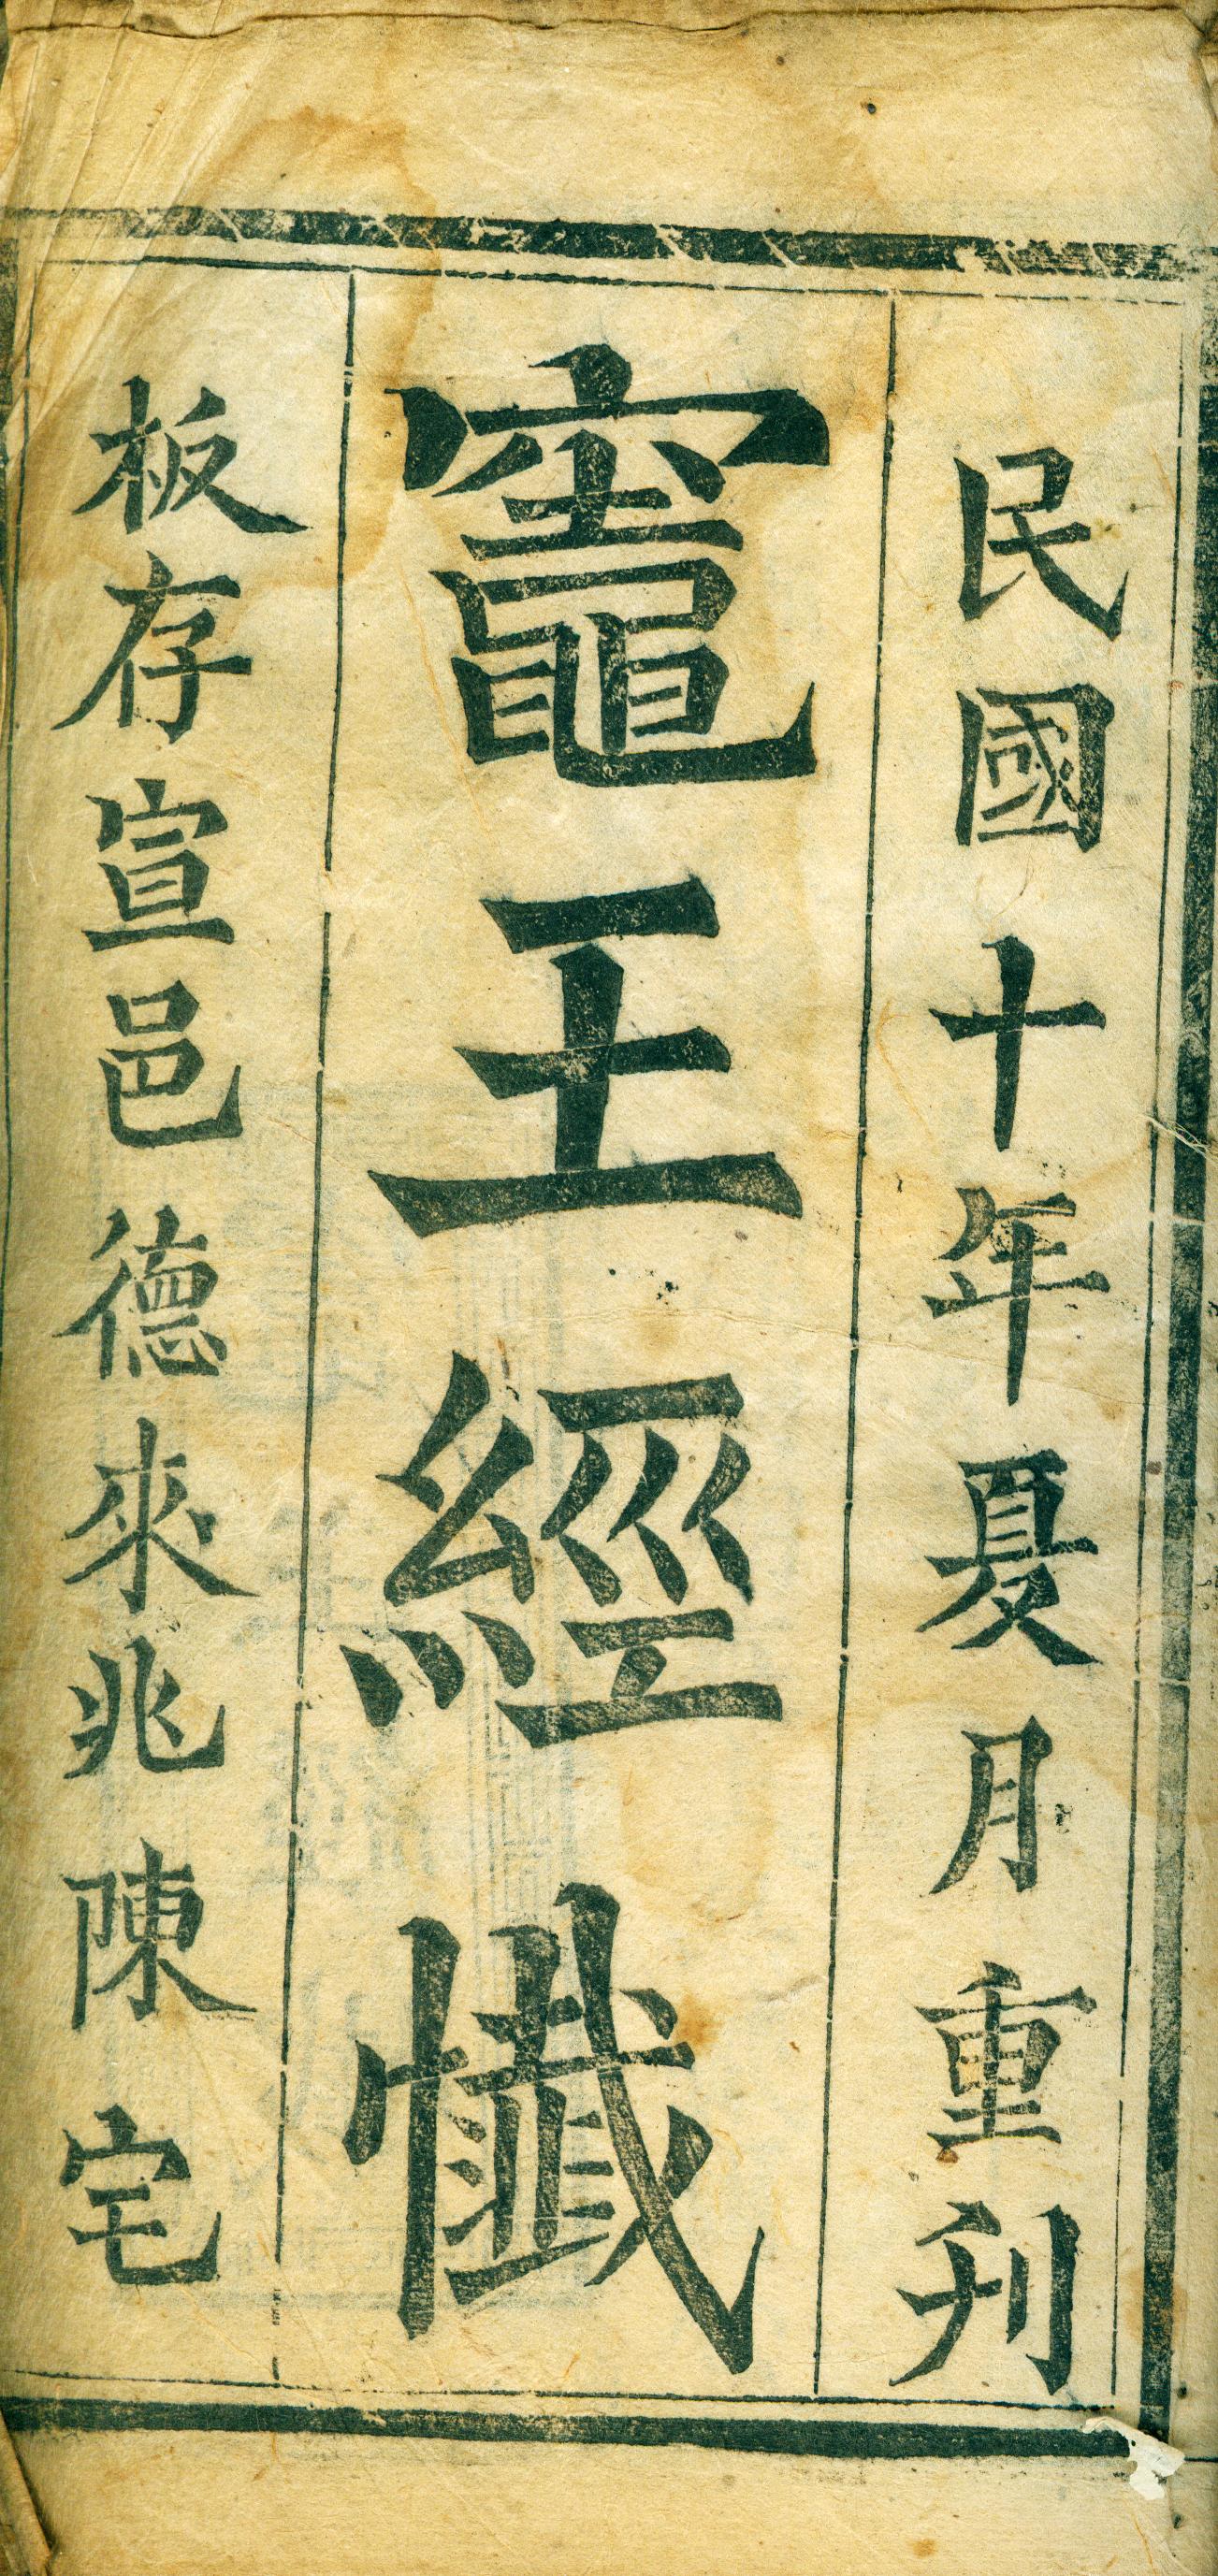 民國十年夏月重刊
竈王經懺
板存宣邑德來兆陳宅